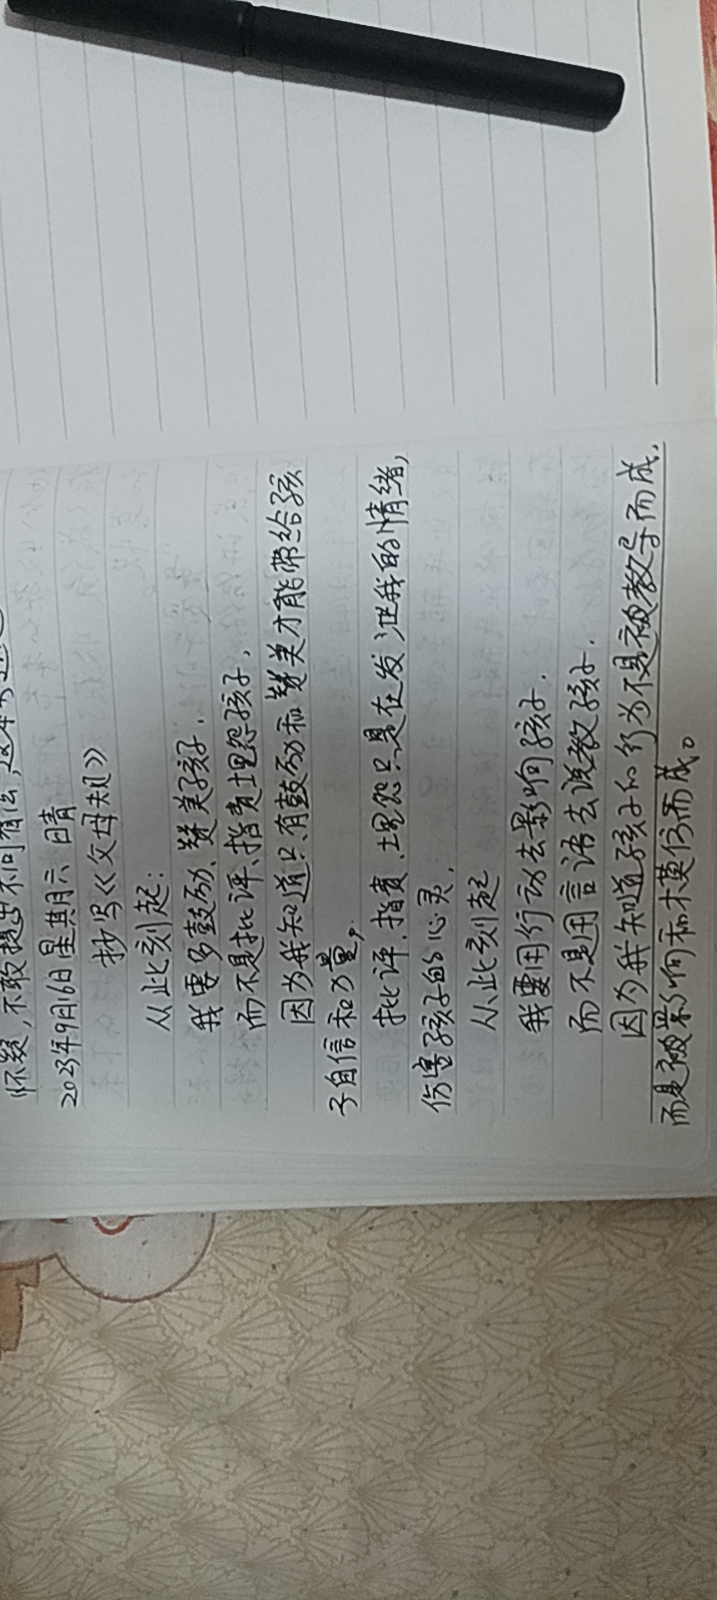 怀疑,不敢提出不同看法,这本书
2023年9月16日星期六 晴
抄写《父母规》
从此刻起:
我要多鼓励、赞美孩子,
而不是批评、指责埋怨孩子,
因为我知道只有鼓励和赞美才能带给孩
子自信和力量,
批评、指责、埋怨只是在发泄我的情绪,
伤害孩子的心灵,
从此刻起
我要用行动去影响孩子,
而不是用言语去说教孩子,
因为我知道孩子的行为不是被教导而成,
而是被影响和模仿而成。